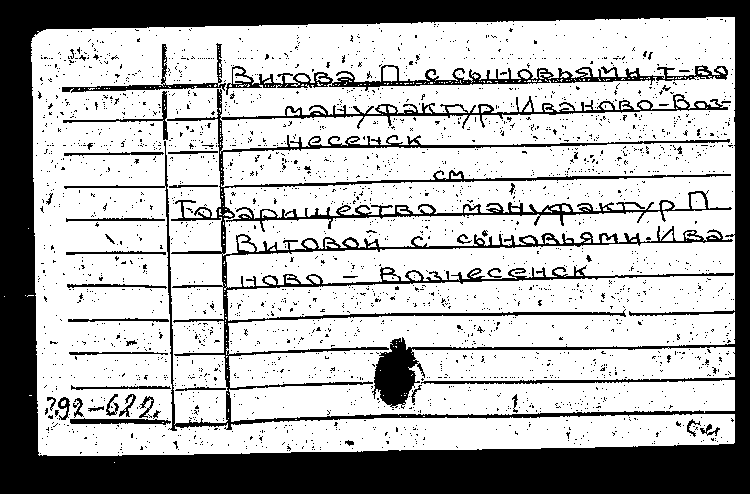 Витова П. с сыновьями, т-во
мануфактур, Иваново-Воз-
несенск
см
Товарищество мануфактур П.
Витовой с сыновьями. Ива-
ново - Вознесенск
392-622.
См